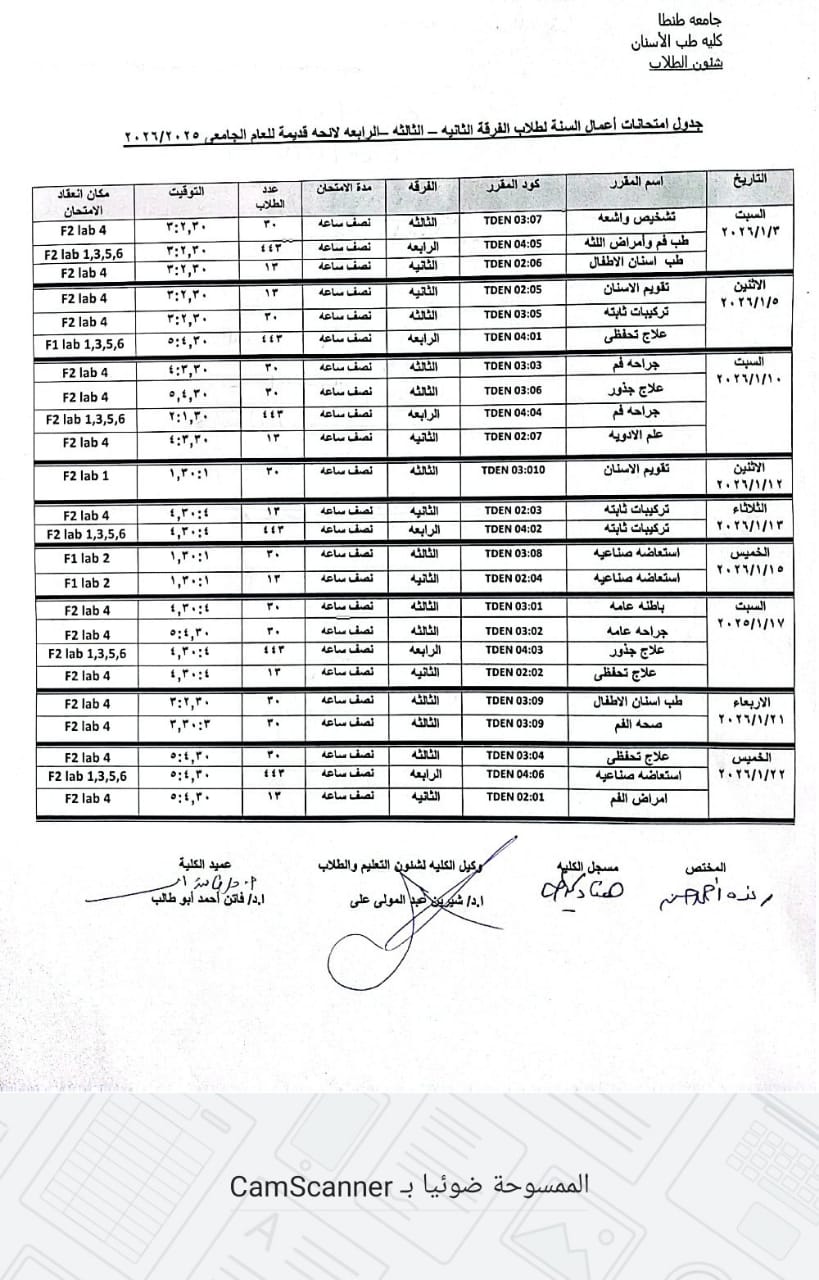 جامعه طنطا
كليه طب الأسنان
شئون الطلاب
جدول امتحانات أعمال السنة لطلاب الفرقة الثانيه – الثالثه –الرابعه لائحه قديمة للعام الجامعى ٢٠٢٦/٢٠٢٥
التاريخ اسم المقرر كود المقرر الفرقه مدة الامتحان عدد الطلاب التوقيت مكان انعقاد الامتحان
السبت ٢٠٢٦/١/٣ تشخيص واشعه TDEN 03:07 الثالثه نصف ساعه ٣٠ ٣:٢,٣٠ F2 lab 4
طب فم وأمراض اللثه TDEN 04:05 الرابعه نصف ساعه ٤٤٣ ٣:٢,٣٠ F2 lab 1,3,5,6
طب اسنان الاطفال TDEN 02:06 الثانيه نصف ساعه ١٣ ٣:٢,٣٠ F2 lab 4
الاثنين ٢٠٢٦/١/٥ تقويم الاسنان TDEN 02:05 الثانيه نصف ساعه ١٣ ٣:٢,٣٠ F2 lab 4
تركيبات ثابته TDEN 03:05 الثالثه نصف ساعه ٣٠ ٣:٢,٣٠ F2 lab 4
علاج تحفظى TDEN 04:01 الرابعه نصف ساعه ٤٤٣ ٥:٤,٣٠ F1 lab 1,3,5,6
السبت ٢٠٢٦/١/١٠ جراحه فم TDEN 03:03 الثالثه نصف ساعه ٣٠ ٤:٣,٣٠ F2 lab 4
علاج جذور TDEN 03:06 الثالثه نصف ساعه ٣٠ ٥,٤,٣٠ F2 lab 4
جراحه فم TDEN 04:04 الرابعه نصف ساعه ٤٤٣ ٢:١,٣٠ F2 lab 1,3,5,6
علم الادويه TDEN 02:07 الثانيه نصف ساعه ١٣ ٤:٣,٣٠ F2 lab 4
الاثنين ٢٠٢٦/١/١٢ تقويم الاسنان TDEN 03:010 الثالثه نصف ساعه ٣٠ ١,٣٠:١ F2 lab 1
الثلاثاء ٢٠٢٦/١/١٣ تركيبات ثابته TDEN 02:03 الثانيه نصف ساعه ١٣ ٤,٣٠:٤ F2 lab 4
تركيبات ثابته TDEN 04:02 الرابعه نصف ساعه ٤٤٣ ٤,٣٠:٤ F2 lab 1,3,5,6
الخميس ٢٠٢٦/١/١٥ استعاضه صناعيه TDEN 03:08 الثالثه نصف ساعه ٣٠ ١,٣٠:١ F1 lab 2
استعاضه صناعيه TDEN 02:04 الثانيه نصف ساعه ١٣ ١,٣٠:١ F1 lab 2
السبت ٢٠٢٥/١/١٧ باطنه عامه TDEN 03:01 الثالثه نصف ساعه ٣٠ ٤,٣٠:٤ F2 lab 4
جراحه عامه TDEN 03:02 الثالثه نصف ساعه ٣٠ ٥:٤,٣٠ F2 lab 4
علاج جذور TDEN 04:03 الرابعه نصف ساعه ٤٤٣ ٤,٣٠:٤ F2 lab 1,3,5,6
علاج تحفظى TDEN 02:02 الثانيه نصف ساعه ١٣ ٤,٣٠:٤ F2 lab 4
الاربعاء ٢٠٢٦/١/٢١ طب اسنان الاطفال TDEN 03:09 الثالثه نصف ساعه ٣٠ ٣:٢,٣٠ F2 lab 4
صحه الفم TDEN 03:09 الثالثه نصف ساعه ٣٠ ٣,٣٠:٣ F2 lab 4
الخميس ٢٠٢٦/١/٢٢ علاج تحفظى TDEN 03:04 الثالثه نصف ساعه ٣٠ ٥:٤,٣٠ F2 lab 4
استعاضه صناعيه TDEN 04:06 الرابعه نصف ساعه ٤٤٣ ٥:٤,٣٠ F2 lab 1,3,5,6
امراض الفم TDEN 02:01 الثانيه نصف ساعه ١٣ ٥:٤,٣٠ F2 lab 4
المختص مسجل الكليه وكيل الكليه لشئون التعليم والطلاب عميد الكلية
ا.د/ شيرين عبد المولى على ا.د/ فاتن أحمد أبو طالب
الممسوحة ضوئيا بـ CamScanner